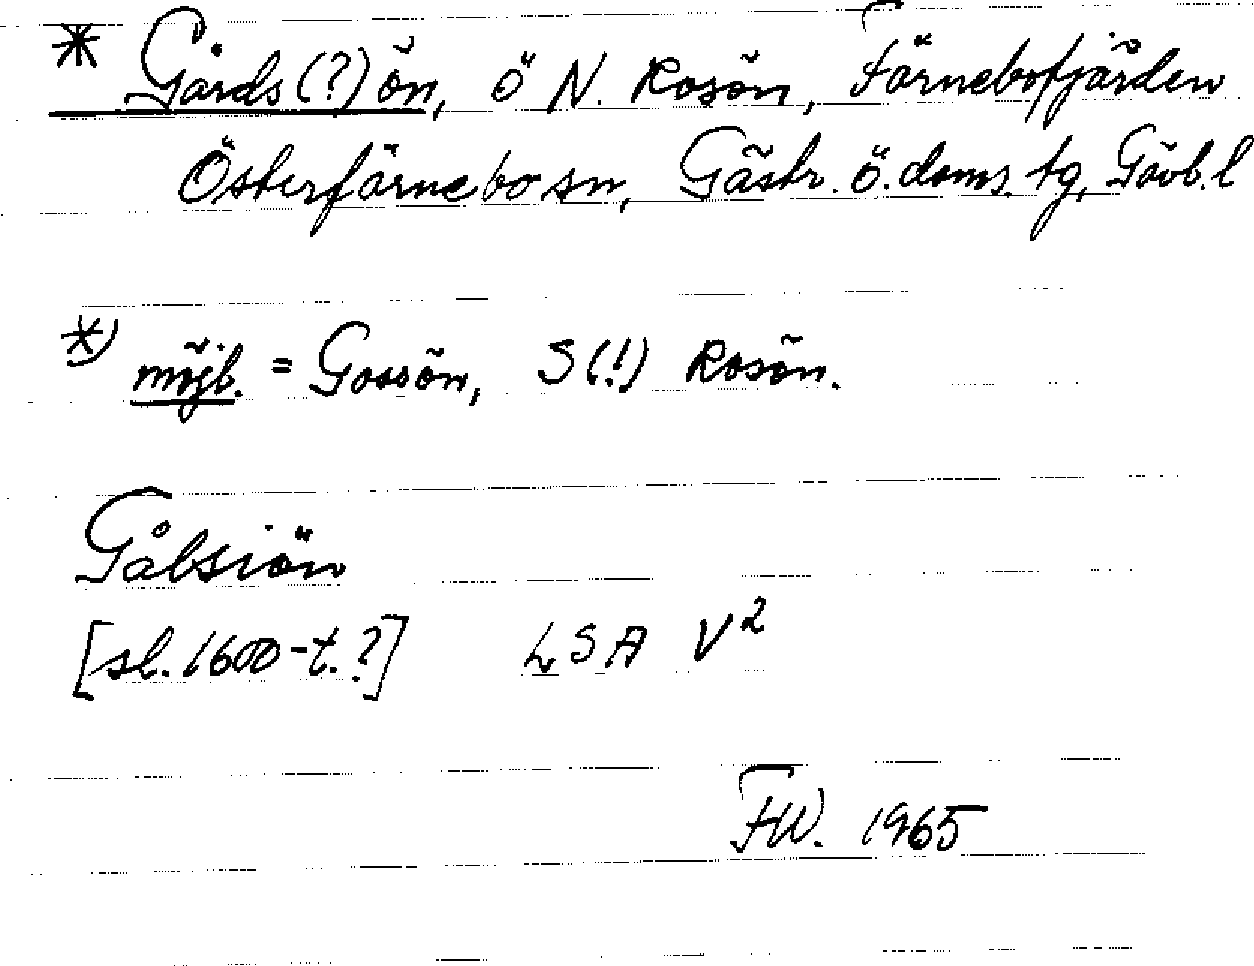 * Gårds(?)ön, ö N. Rosön, Färnebofjärden
Österfärnebo sn, Gästr. ö. doms. tg, Gävb. l
*) möjl. = Gossön, S(!) Rosön.
Gålsiön
[sl. 1600-t.?] LSA V²
FW. 1965